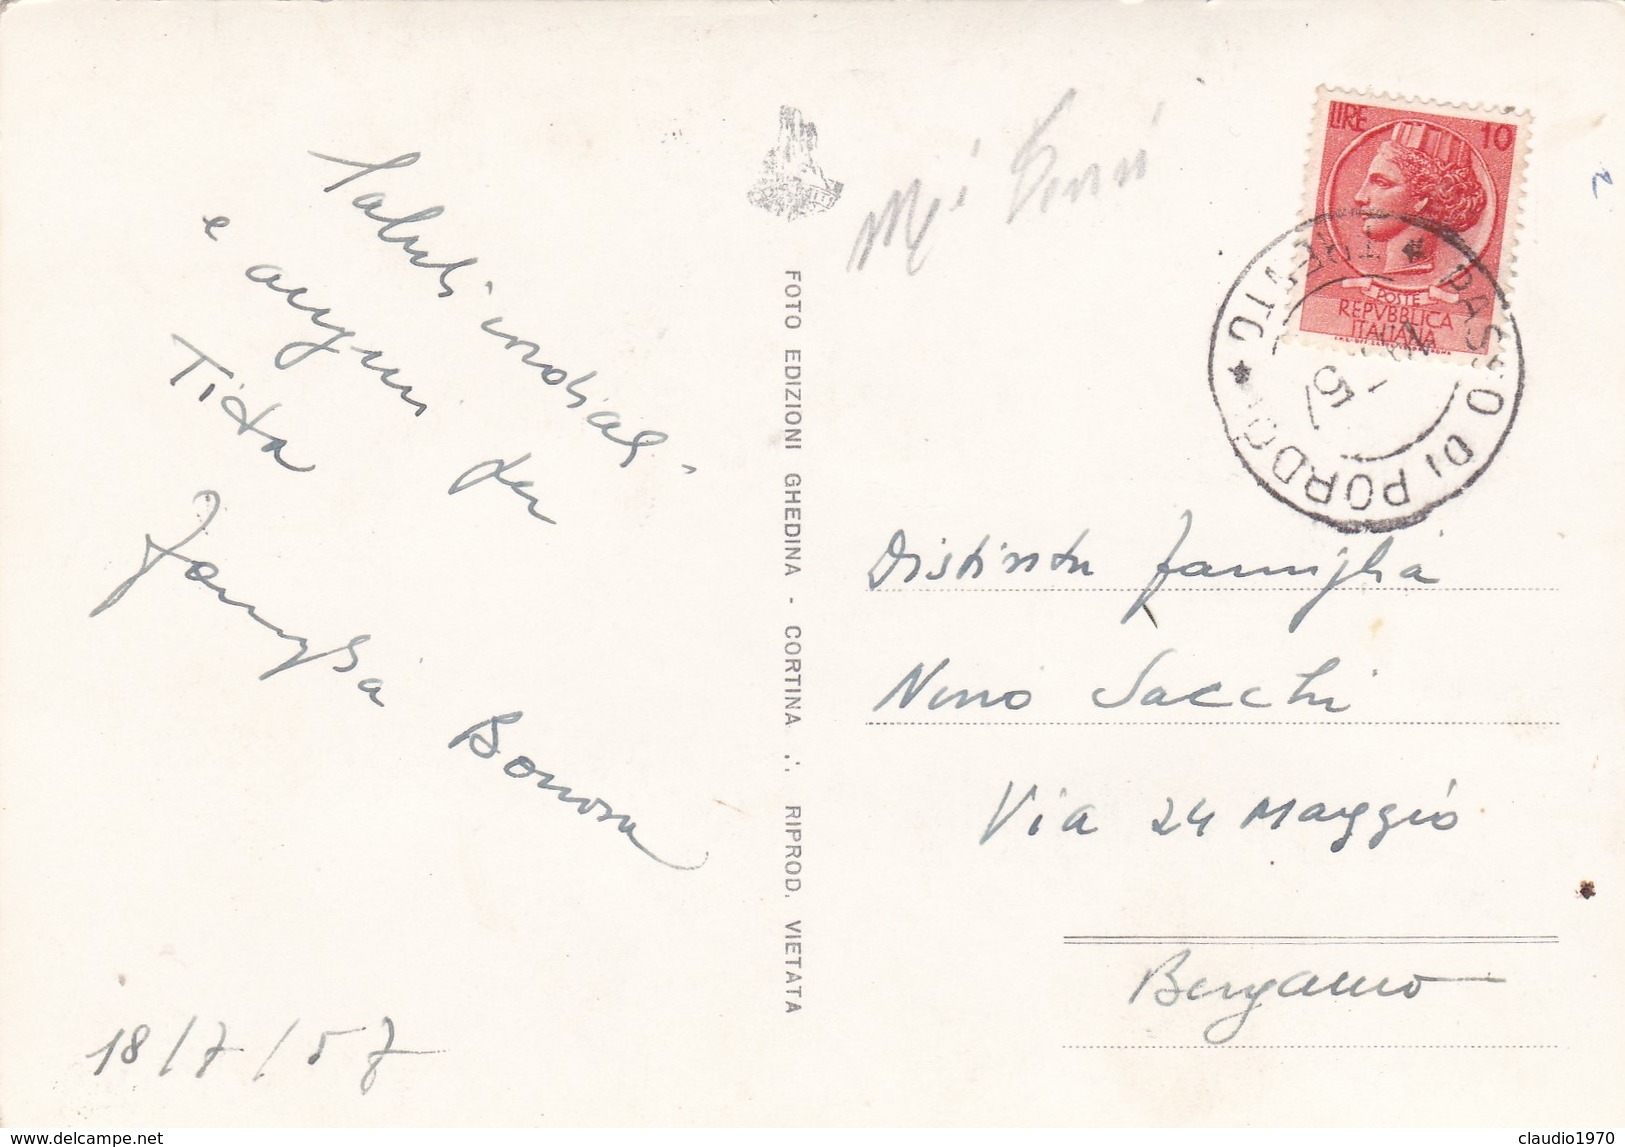 Saluti cordiali
e auguri da
Tida
famiglia Bonora
18/7/57
FOTO EDIZIONI GHEDINA - CORTINA ∴ RIPROD. VIETATA
LIRE 10
POSTE
REPVBBLICA
ITALIANA
* PASSO DI PORDOI * TRENTO
Distinta famiglia
Nino Sacchi
Via 24 Maggio
Bergamo
delcampe.net
claudio1970